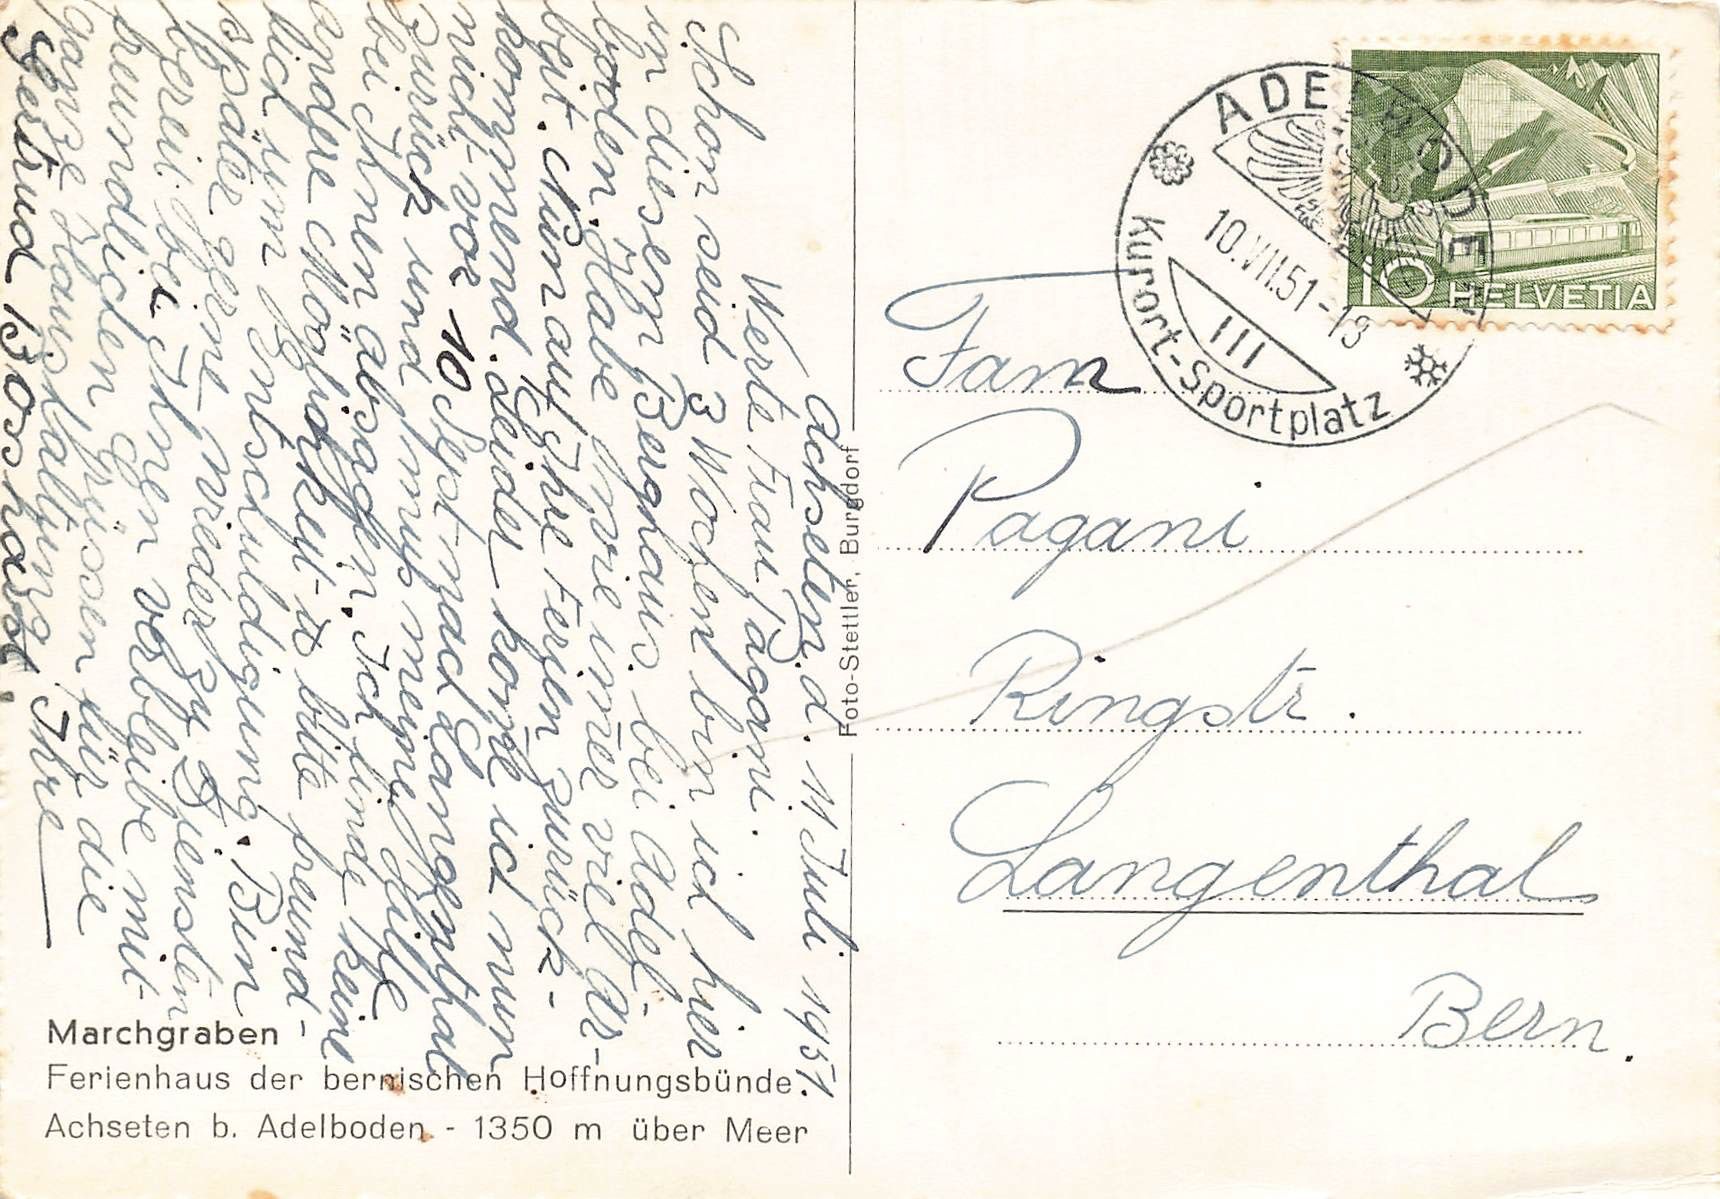 Achseten, d. 11 Juli 1951
Werte Frau Pagani.
Schon seid 3 Wochen bin ich hier
in diesem Berghaus bei Adel-
boden. Habe wie imer viel Ar-
beit. Nun auf Ihre Ferien zurück-
kommend. Leider kome ich nun
nicht vor 10 Sept nach Langenthal
zurück und muss meine Hilfe
bei Ihnen absagen. Ich finde keine
andere Möglichkeit u bitte freund-
lich um Entschuldigung. Bin
später gerne wieder zu Diensten
bereit bei Ihnen verbleibe mit
freundlichen Grüssen für die
ganze Haushaltung Ihre
Gertrud Bosshard.
Marchgraben
Ferienhaus der bernischen Hoffnungsbünde.
Achseten b. Adelboden - 1350 m über Meer
Foto-Stettler, Burgdorf
ADELBODEN
10.VII.51-18
III
Kurort-Sportplatz
10 HELVETIA
Fam
Pagani
Ringstr.
Langenthal
Bern.